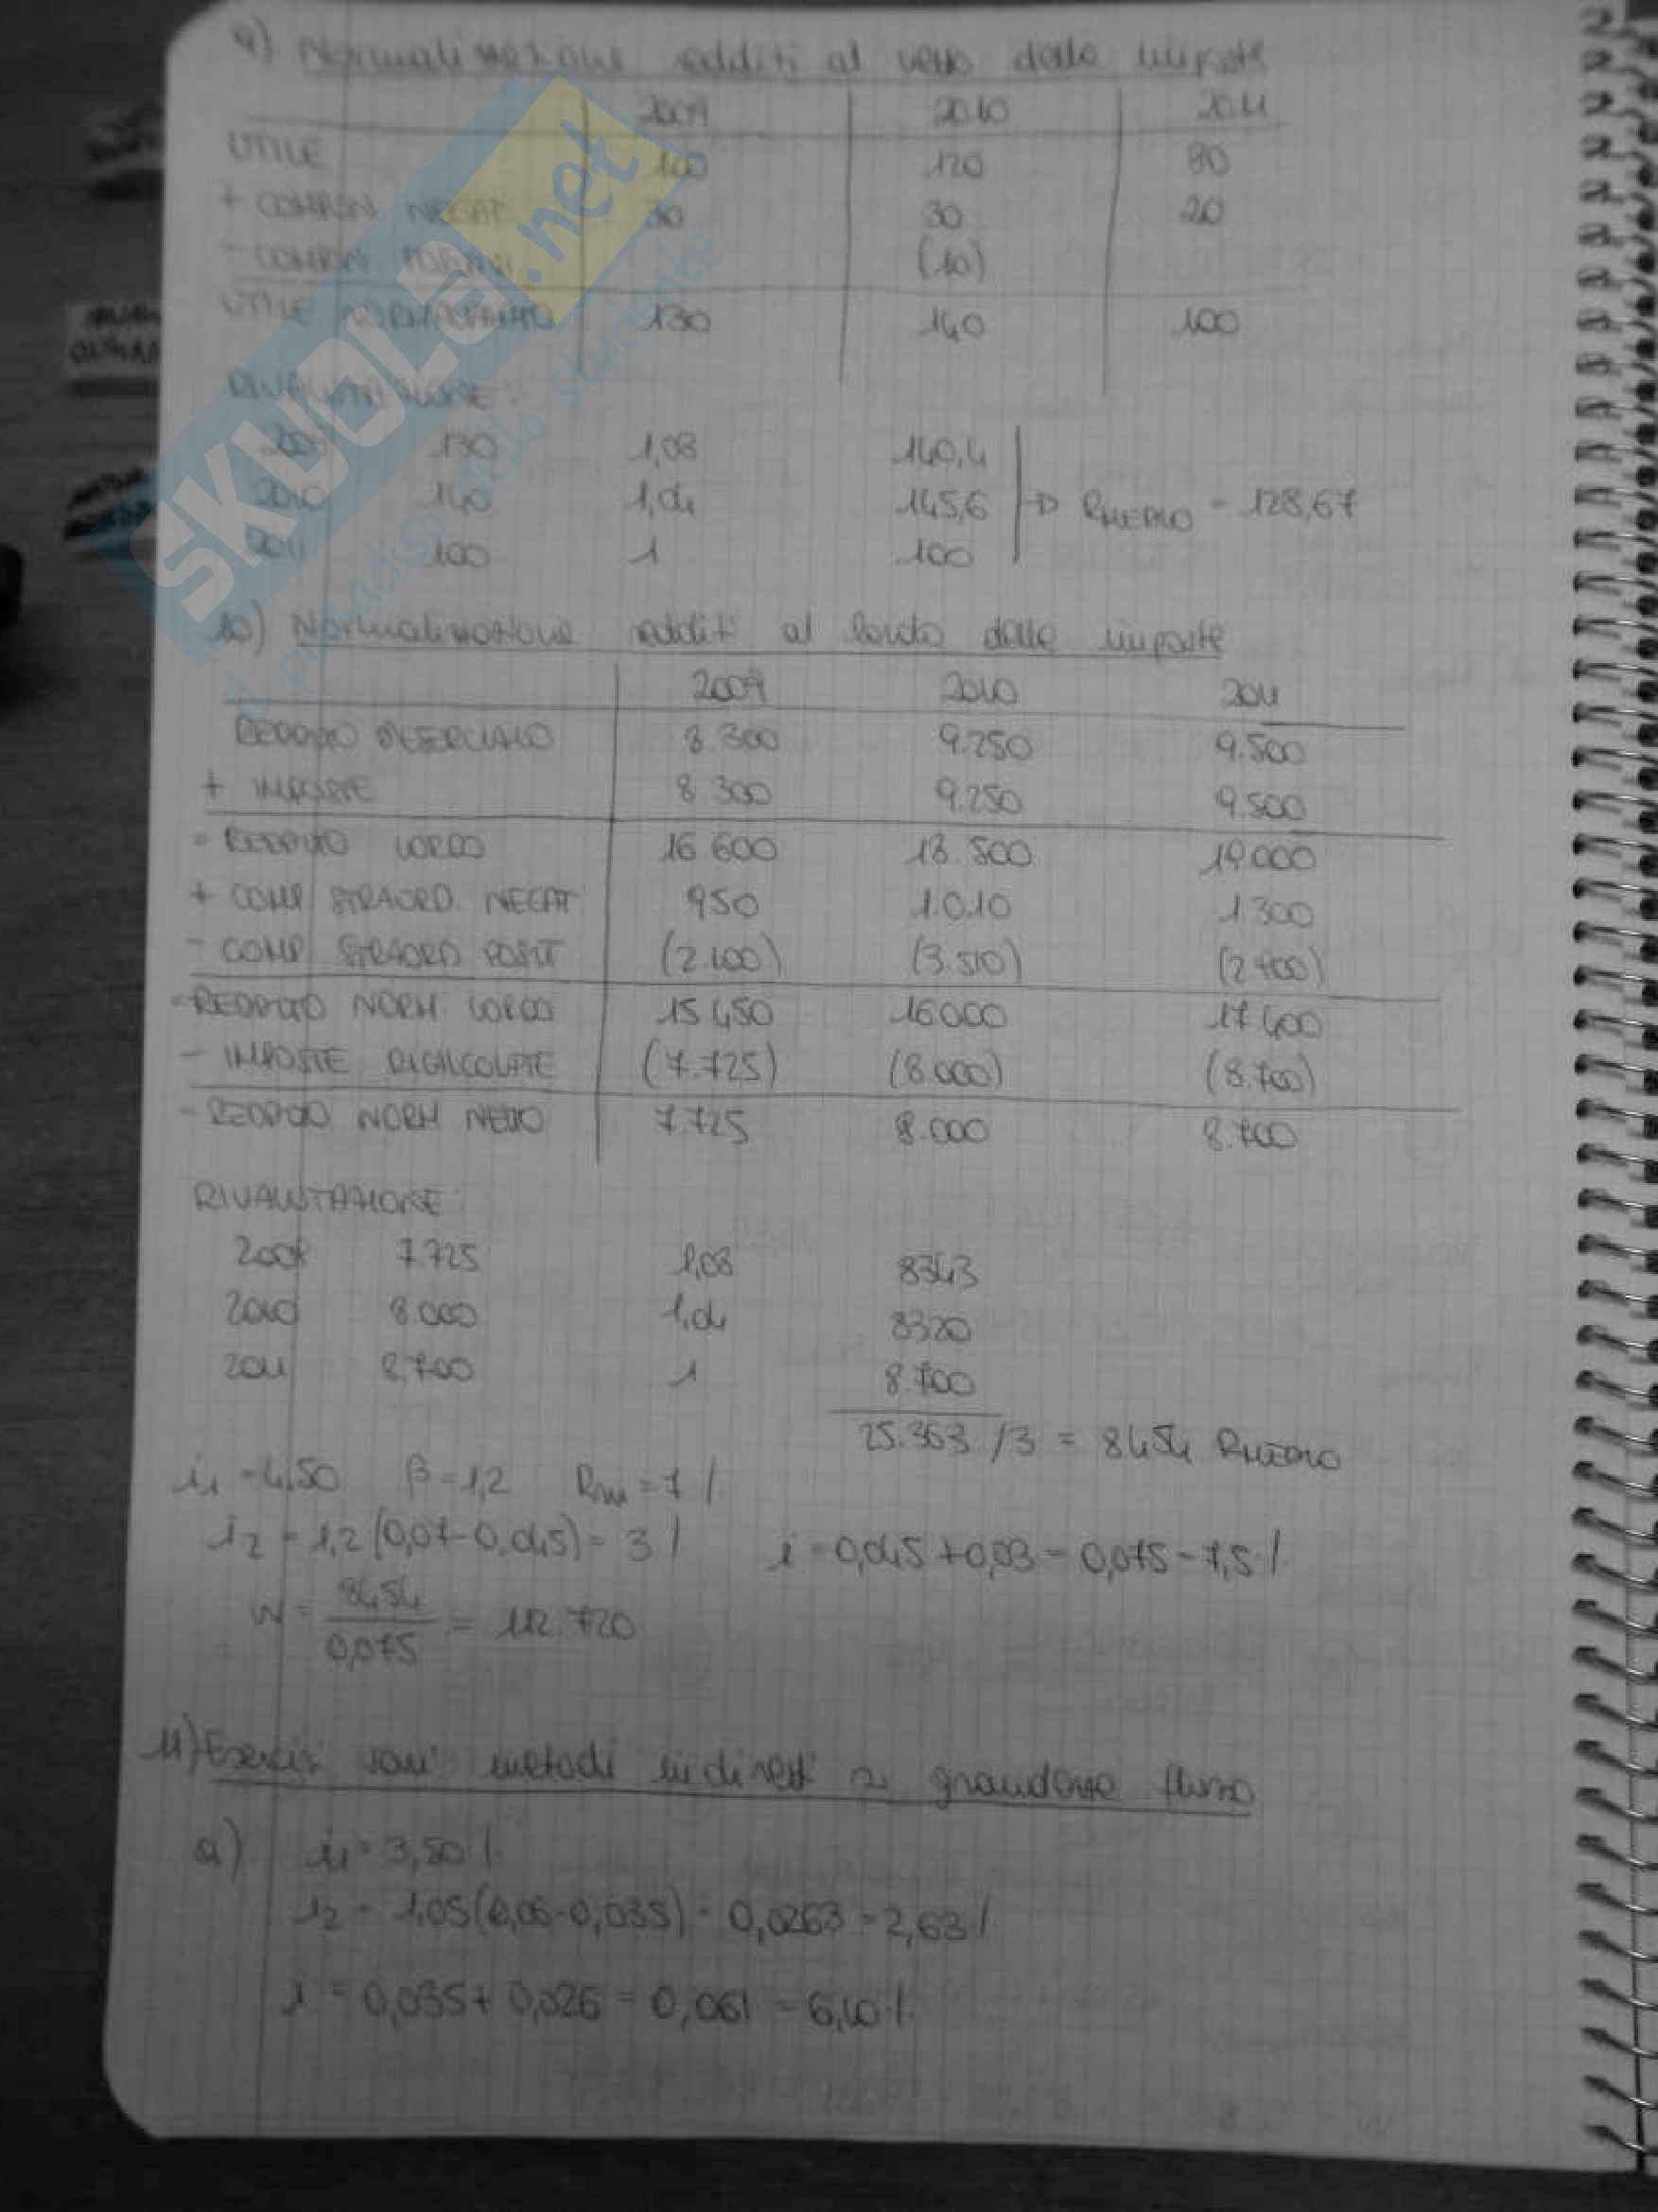 9) Normalizzazione redditi al netto delle imposte
2009 2010 2011
UTILE 100 120 80
+ COMPON NEGAT 30 30 20
- COMPON POSITIVI (10)
UTILE NORMALIZZATO 130 140 100
RIVALUTAZIONE:
2009 130 1,08 140,4
2010 140 1,04 145,6 → RMEDIO = 128,67
2011 100 1 100
10) Normalizzazione redditi al lordo delle imposte
2009 2010 2011
REDDITO D'ESERCIZIO 8.300 9.250 9.500
+ IMPOSTE 8.300 9.250 9.500
= REDDITO LORDO 16.600 18.500 19.000
+ COMP. STRAORD. NEGAT 950 1.010 1.300
- COMP STRAORD POSIT (2.100) (3.510) (2.900)
= REDDITO NORM. LORDO 15.450 16.000 17.400
- IMPOSTE RICALCOLATE (7.725) (8.000) (8.700)
= REDDITO NORM NETTO 7.725 8.000 8.700
RIVALUTAZIONE:
2009 7.725 1,08 8343
2010 8.000 1,04 8320
2011 8.700 1 8.700
25.363 /3 = 8454 RMEDIO
i1 = 4,50 β = 1,2 Rm = 7%
i2 = 1,2 (0,07-0,045) = 3% i = 0,045 + 0,03 = 0,075 = 7,5%
W = 8454 / 0,075 = 112.720
11) Esercizi vari: metodi indiretti a grandezze flusso
a) i1 = 3,50%
i2 = 1,05(0,06-0,035) = 0,0263 = 2,63%
i = 0,035 + 0,026 = 0,061 = 6,10%
SKUOLA.net
il paradiso dello studente